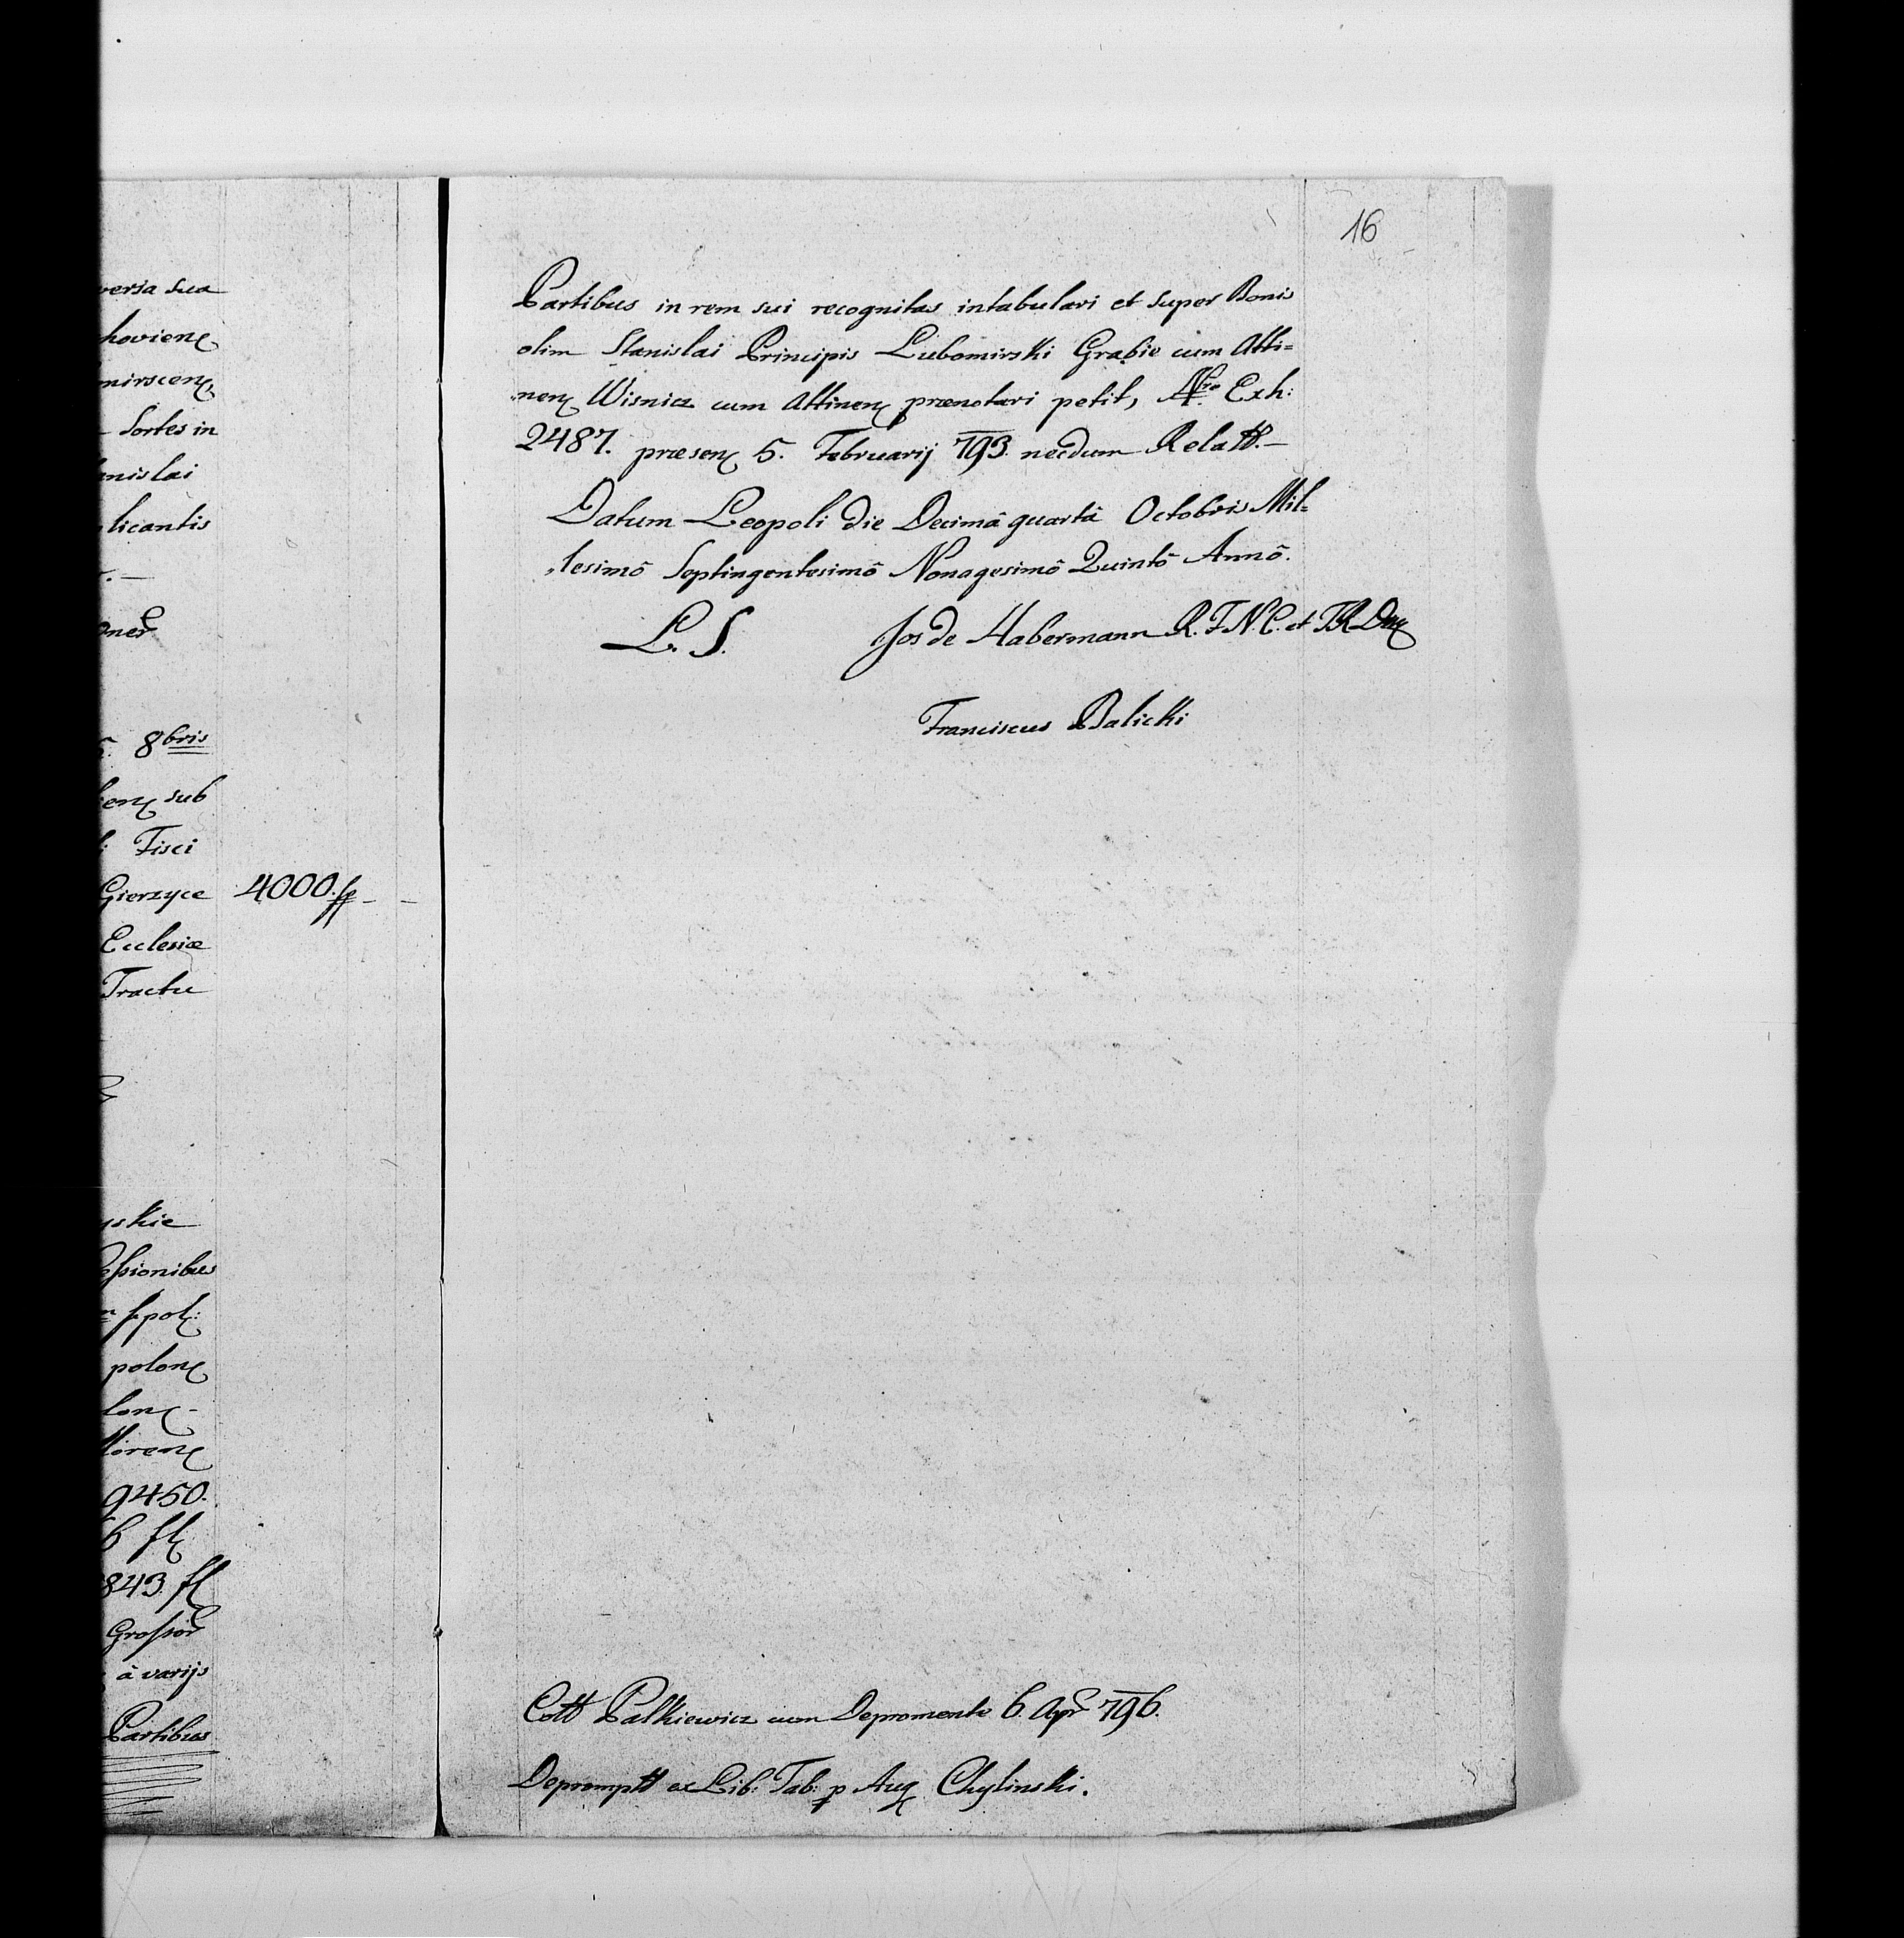 veria sua
hovienꝫ
mirscenꝫ
Sortes in
nislai
licantis
8bris
enꝫ sub
Fisci
Gierzyce 4000.
Ecclesiæ
Tractu
yskie
eſsionibus
polonꝫ
lonꝫ -
9450.
6 flꝫ
843 fl
Groſsor
à varijs
Partibus
16
Partibus in rem sui recognitas intabulari et super Bonis
olim Stanislai Principis Lubomirski Grabie cum Atti=
nenꝫ Wisnicz cum Attinenꝫ prænotari petit, Nro Exh:
2487. præsenꝫ 5. Februarij 793. necdum Relatt. —
Datum Leopoli die Decimâ quartâ Octobris Mil=
lesimô Septingentesimô Nonagesimô Quintô Annô.
L. S. Jos de Habermann R. F. N. C. et
Franciscus Balicki
Cott Palkiewicz cum Depromente 6. Apr 796.
Depromptt ex Lib: Tab: p Aug Chylinski.